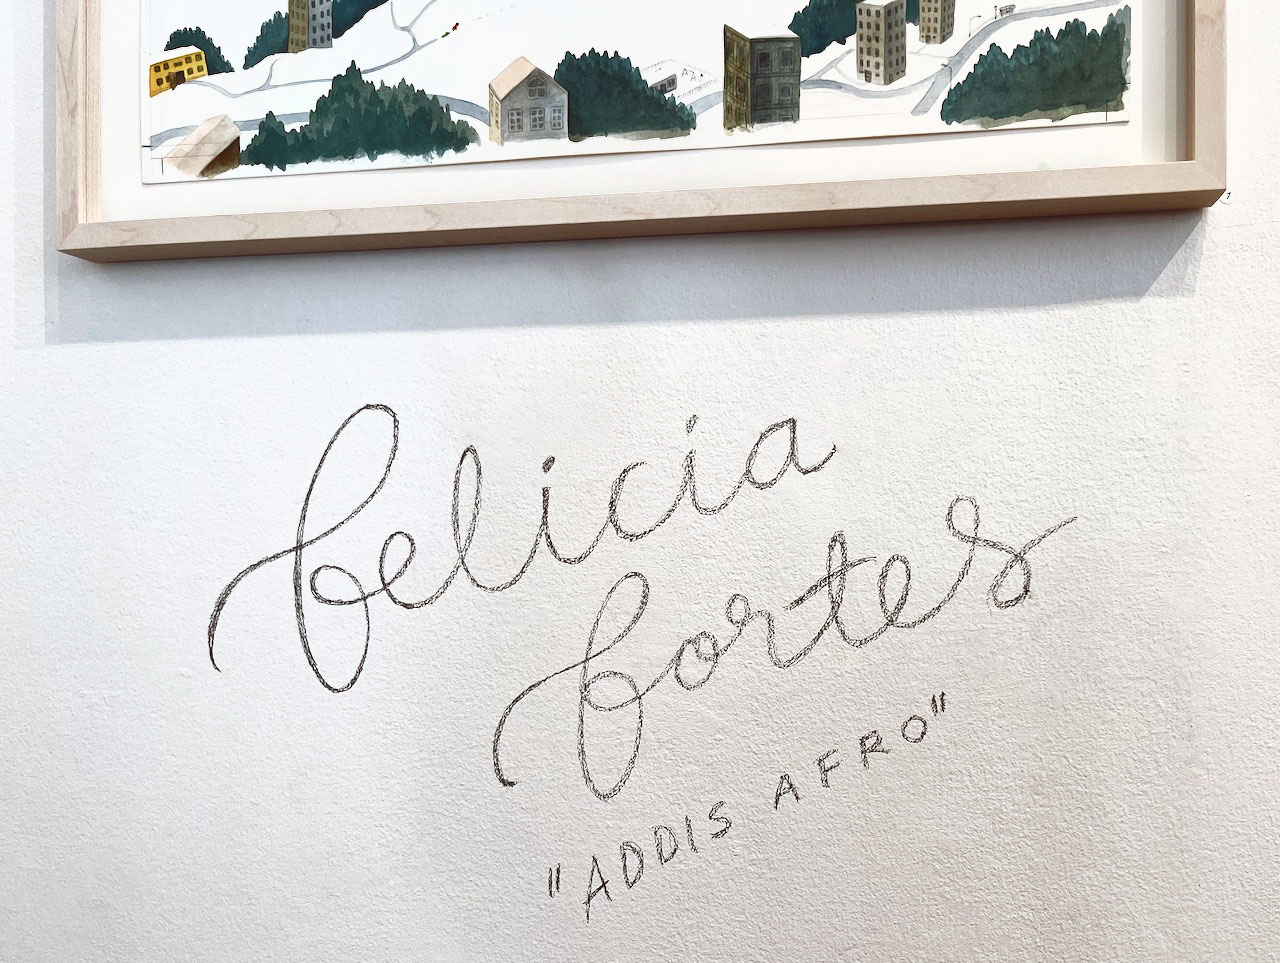 felicia
fortes
"ADDIS AFRO"